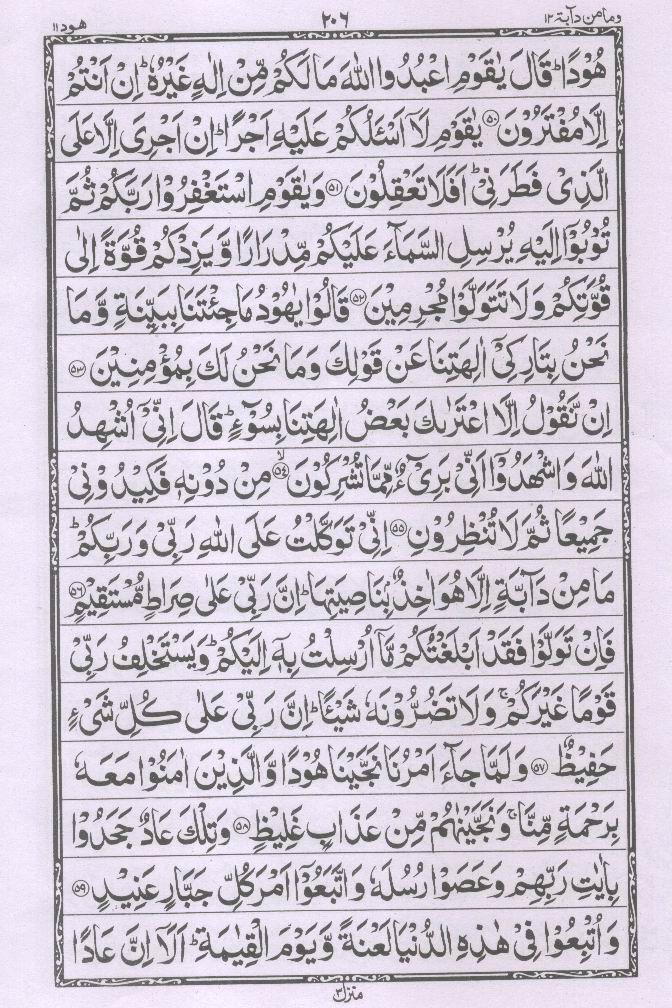 وما من دآبة ١٢
٢٠٦
هود ١١
هُوْدًا ؕ قَالَ يٰقَوْمِ اعْبُدُوا اللّٰهَ مَا لَكُمْ مِّنْ اِلٰهٍ غَيْرُهٗ ؕ اِنْ اَنْتُمْ
اِلَّا مُفْتَرُوْنَ ﴿۵۰﴾ يٰقَوْمِ لَاۤ اَسْـَٔلُكُمْ عَلَيْهِ اَجْرًا ؕ اِنْ اَجْرِىَ اِلَّا عَلَى
الَّذِىْ فَطَرَنِىْ ؕ اَفَلَا تَعْقِلُوْنَ ﴿۵۱﴾ وَيٰقَوْمِ اسْتَغْفِرُوْا رَبَّكُمْ ثُمَّ
تُوْبُوْۤا اِلَيْهِ يُرْسِلِ السَّمَآءَ عَلَيْكُمْ مِّدْرَارًا وَّيَزِدْكُمْ قُوَّةً اِلٰى
قُوَّتِكُمْ وَلَا تَتَوَلَّوْا مُجْرِمِيْنَ ﴿۵۲﴾ قَالُوْا يٰهُوْدُ مَا جِئْتَنَا بِبَيِّنَةٍ وَّمَا
نَحْنُ بِتَارِكِىْۤ اٰلِهَتِنَا عَنْ قَوْلِكَ وَمَا نَحْنُ لَكَ بِمُؤْمِنِيْنَ ﴿۵۳﴾
اِنْ نَّقُوْلُ اِلَّا اعْتَرٰىكَ بَعْضُ اٰلِهَتِنَا بِسُوْٓءٍ ؕ قَالَ اِنِّىْۤ اُشْهِدُ
اللّٰهَ وَاشْهَدُوْۤا اَنِّىْ بَرِىْٓءٌ مِّمَّا تُشْرِكُوْنَ ۙ﴿۵۴﴾ مِنْ دُوْنِهٖ فَكِيْدُوْنِىْ
جَمِيْعًا ثُمَّ لَا تُنْظِرُوْنِ ﴿۵۵﴾ اِنِّىْ تَوَكَّلْتُ عَلَى اللّٰهِ رَبِّىْ وَرَبِّكُمْ ؕ
مَا مِنْ دَآبَّةٍ اِلَّا هُوَ اٰخِذٌۢ بِنَاصِيَتِهَا ؕ اِنَّ رَبِّىْ عَلٰى صِرَاطٍ مُّسْتَقِيْمٍ ﴿۵۶﴾
فَاِنْ تَوَلَّوْا فَقَدْ اَبْلَغْتُكُمْ مَّاۤ اُرْسِلْتُ بِهٖۤ اِلَيْكُمْ ؕ وَيَسْتَخْلِفُ رَبِّىْ
قَوْمًا غَيْرَكُمْ ۚ وَلَا تَضُرُّوْنَهٗ شَيْئًا ؕ اِنَّ رَبِّىْ عَلٰى كُلِّ شَىْءٍ
حَفِيْظٌ ﴿۵۷﴾ وَلَمَّا جَآءَ اَمْرُنَا نَجَّيْنَا هُوْدًا وَّالَّذِيْنَ اٰمَنُوْا مَعَهٗ
بِرَحْمَةٍ مِّنَّا ۚ وَنَجَّيْنٰهُمْ مِّنْ عَذَابٍ غَلِيْظٍ ﴿۵۸﴾ وَتِلْكَ عَادٌ جَحَدُوْا
بِاٰيٰتِ رَبِّهِمْ وَعَصَوْا رُسُلَهٗ وَاتَّبَعُوْۤا اَمْرَ كُلِّ جَبَّارٍ عَنِيْدٍ ﴿۵۹﴾
وَاُتْبِعُوْا فِىْ هٰذِهِ الدُّنْيَا لَعْنَةً وَّيَوْمَ الْقِيٰمَةِ ؕ اَلَاۤ اِنَّ عَادًا
منزل ٣